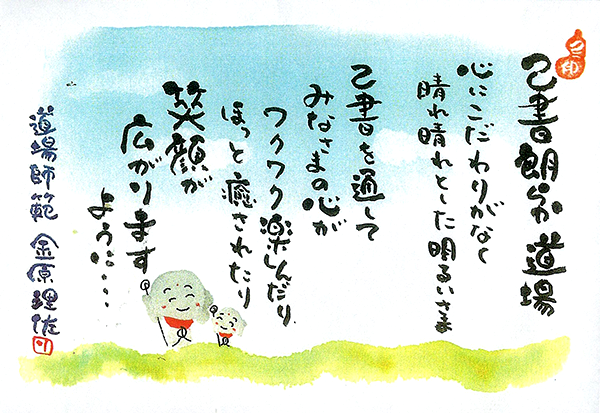 己書朗らか道場
心にこだわりがなく
晴れ晴れとした明るいさま
己書を通して
みなさまの心が
ワクワク楽しんだり
ほっと癒されたり
笑顔が
広がります
ように・・・
道場師範 金原理佐